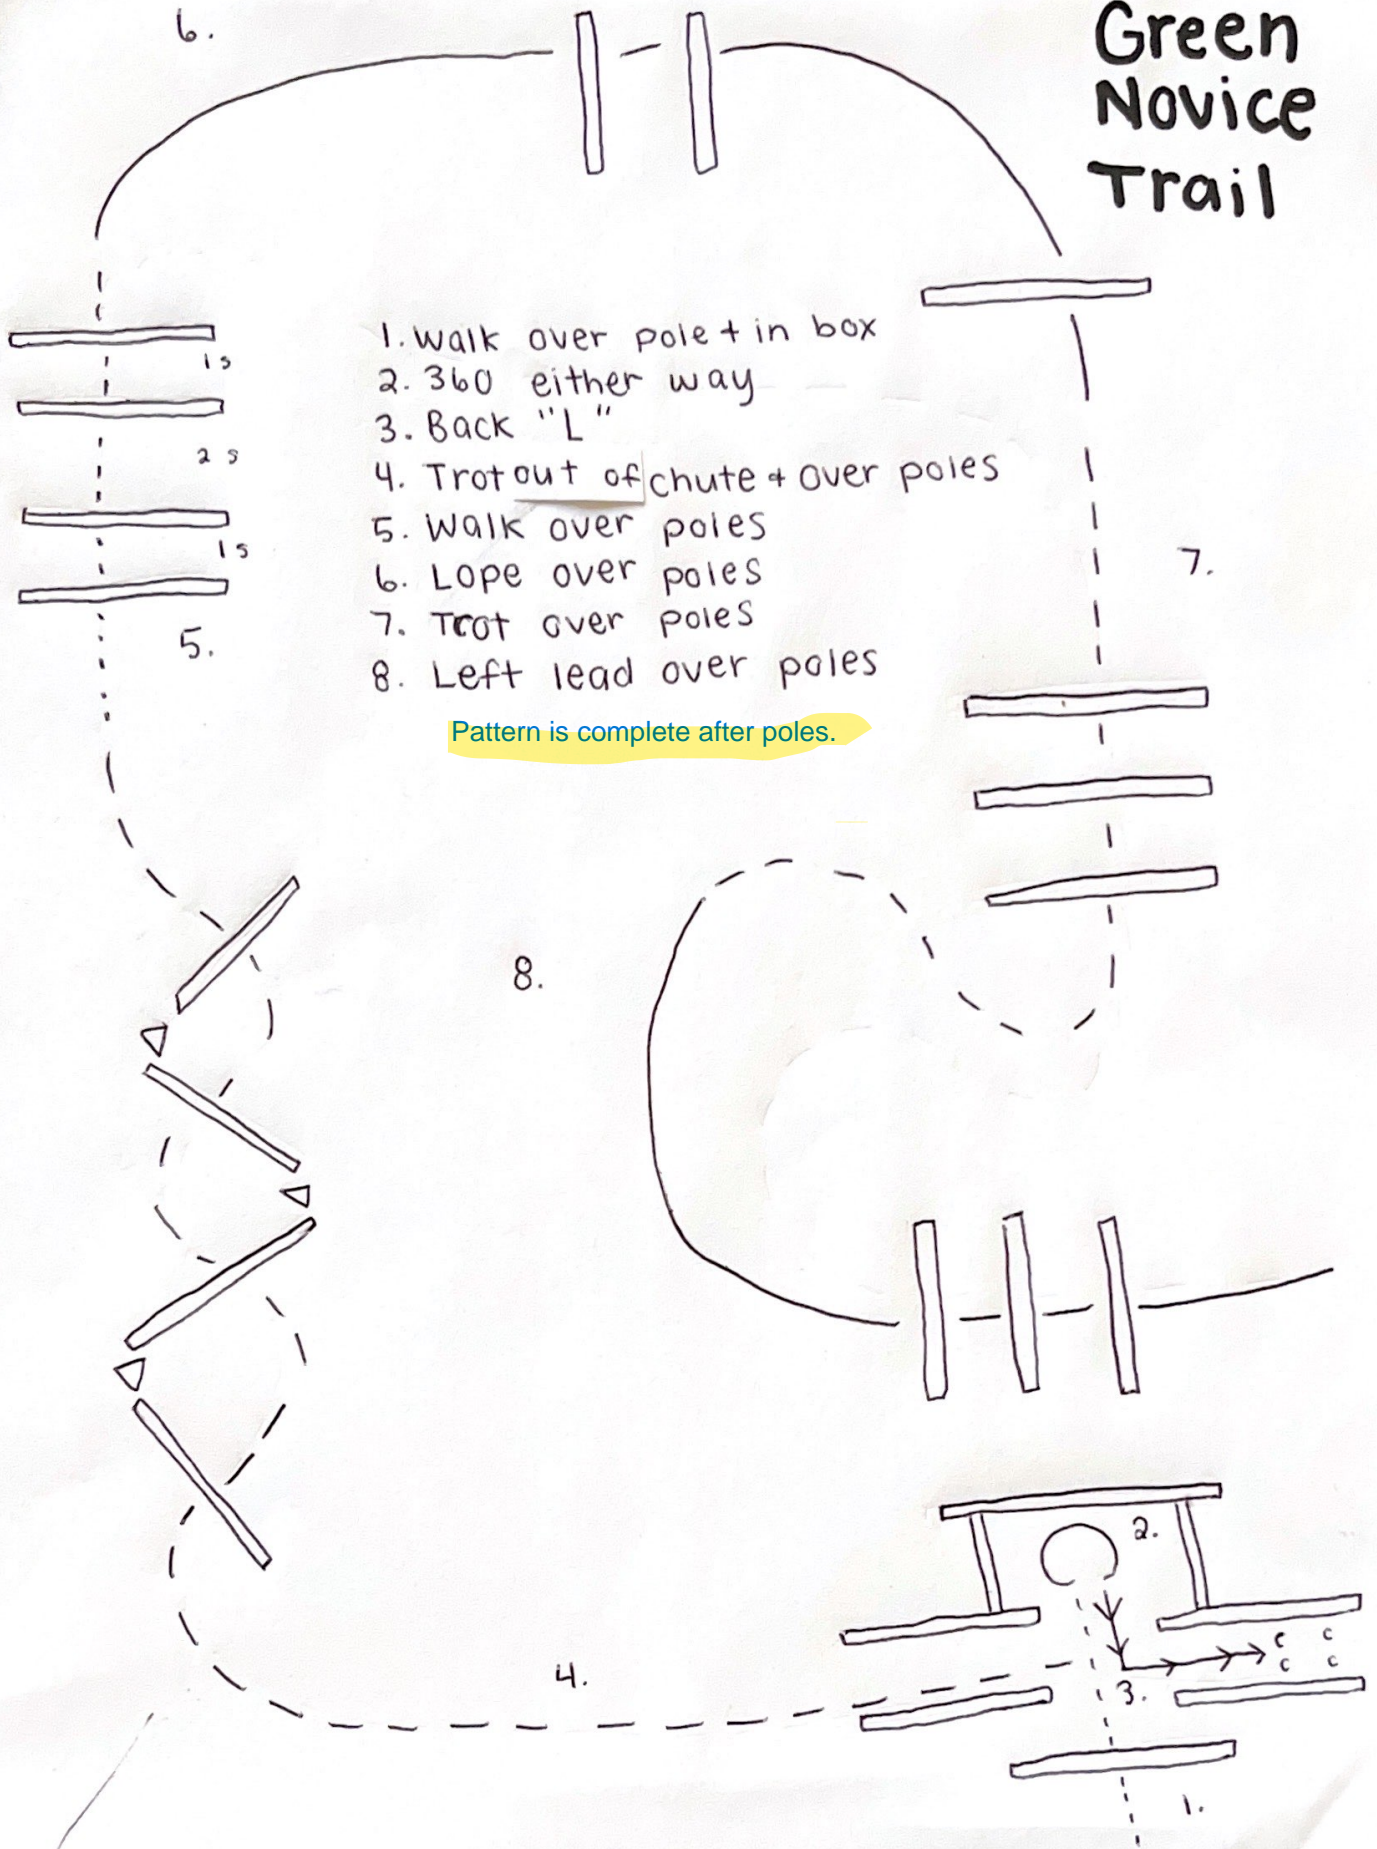 6.
Green
Novice
Trail
1. Walk over pole + in box
2. 360 either way
3. Back "L"
4. Trot out of chute + over poles
5. Walk over poles
6. Lope over poles
7. Trot over poles
8. Left lead over poles
Pattern is complete after poles.
1 s
2 s
1 s
5.
7.
8.
2.
c c
c c
3.
4.
1.